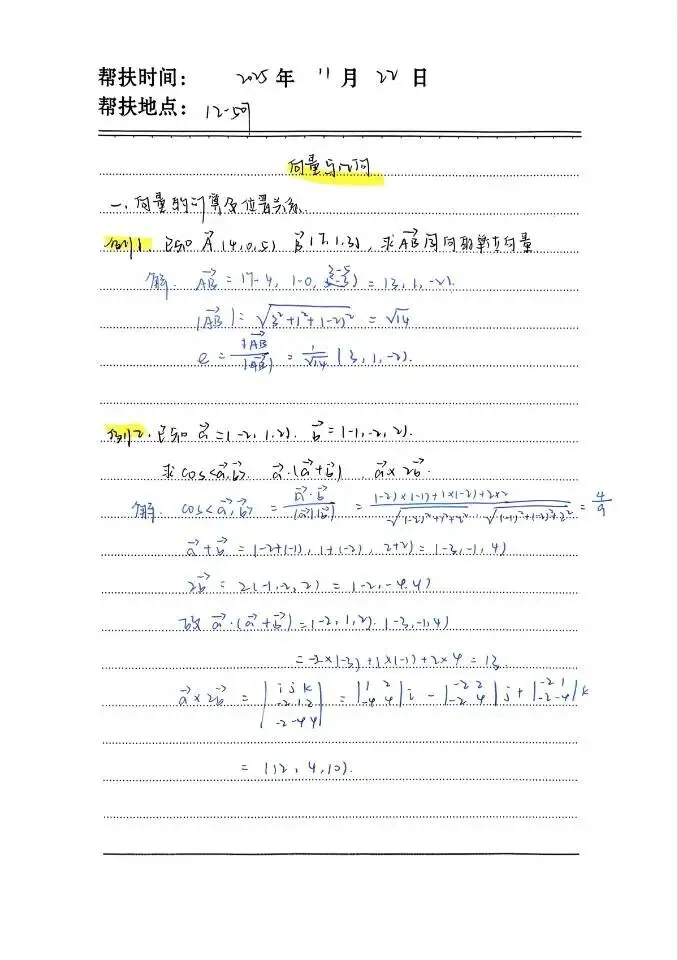 帮扶时间: 2025年 11月 22日
帮扶地点: 12-507
向量与几何
一、向量的计算及位置关系.
例1. 已知 A(4,0,5) B(7,1,3), 求AB同向的单位向量
解. AB = (7-4, 1-0, 3-5) = (3,1,-2).
|AB| = √3²+1²+(-2)² = √14
e = AB/|AB| = 1/√14 (3,1,-2).
例2. 已知 a=(-2,1,2). b=(-1,-2,2).
求cos<a,b>. a·(a+b), a×2b.
解. cos<a,b> = a·b/|a||b| = (-2)×(-1)+1×(-2)+2×2/√(-2)²+1²+2²·√(-1)²+(-2)²+2² = 4/9
a+b = (-2+(-1), 1+(-2), 2+2) = (-3,-1,4)
2b = 2(-1,-2,2) = (-2,-4,4)
故 a·(a+b) = (-2,1,2)·(-3,-1,4)
= -2×(-3)+1×(-1)+2×4 = 13
a×2b = |i j k -2 1 2 -2 -4 4| = |1 2 -4 4| i - |-2 2 -2 4| j + |-2 1 -2 -4| k
= (12, 4, 10).